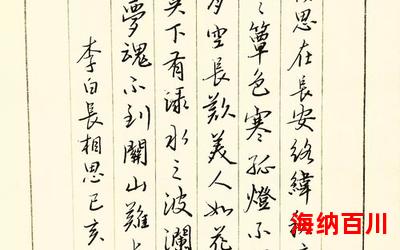 思在長安絡緯
簟色寒孤燈不
空長歎美人如花
下有淥水之波瀾
夢魂不到關山難
李白長相思己亥
海纳百川